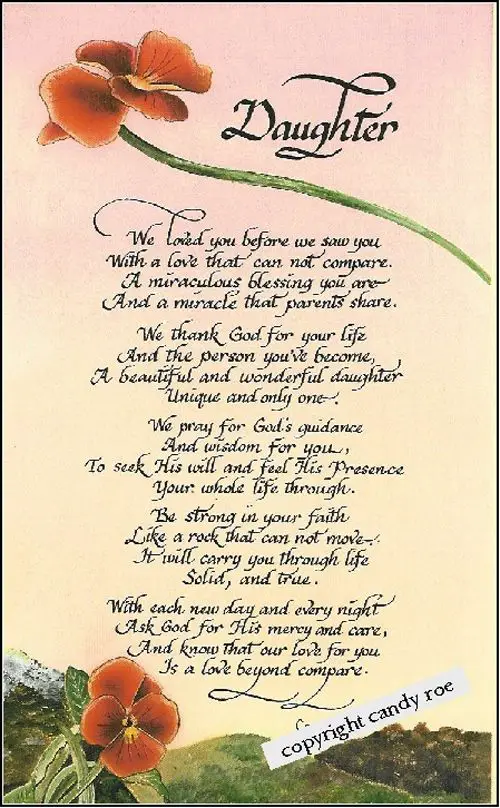 Daughter
We loved you before we saw you
With a love that can not compare.
A miraculous blessing you are
And a miracle that parents share.
We thank God for your life
And the person you've become,
A beautiful and wonderful daughter
Unique and only one.
We pray for God's guidance
And wisdom for you,
To seek His will and feel His Presence
Your whole life through.
Be strong in your faith
Like a rock that can not move.
It will carry you through life
Solid, and true.
With each new day and every night
Ask God for His mercy and care,
And know that our love for you
Is a love beyond compare.
copyright candy roe